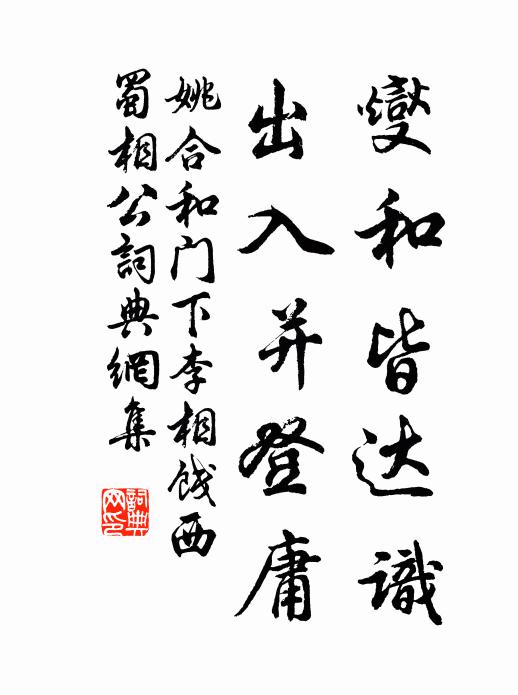 燮和皆达識
出入并登庸
姚合和门下李相餞西
蜀相公詞典網集
詞典网印